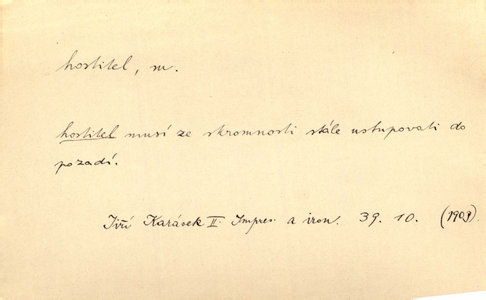 hostitel, m.
hostitel musí ze skromnosti stále ustupovati do
pozadí.
Jiří Karásek II. Impres. a iron. 39. 10. (1903)